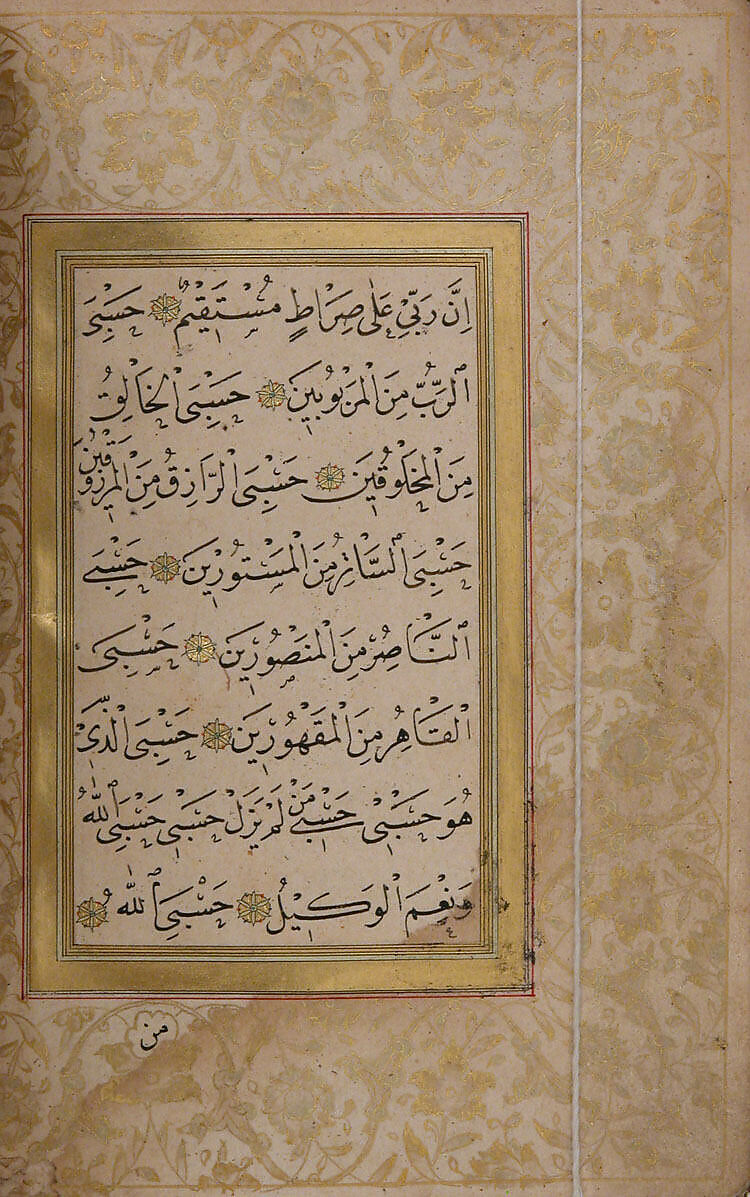 إِنَّ رَبِّي عَلَى صِرَاطٍ مُسْتَقِيمٍ حَسْبِيَ
الرَّبُّ مِنَ الْمَرْبُوبِينَ حَسْبِيَ الْخَالِقُ
مِنَ الْمَخْلُوقِينَ حَسْبِيَ الرَّازِقُ مِنَ الْمَرْزُوقِينَ
حَسْبِيَ السَّاتِرُ مِنَ الْمَسْتُورِينَ حَسْبِيَ
النَّاصِرُ مِنَ الْمَنْصُورِينَ حَسْبِيَ
الْقَاهِرُ مِنَ الْمَقْهُورِينَ حَسْبِيَ الَّذِي
هُوَ حَسْبِي حَسْبِي مَنْ لَمْ يَزَلْ حَسْبِي حَسْبِيَ اللّٰهُ
وَنِعْمَ الْوَكِيلُ حَسْبِيَ اللّٰهُ
من